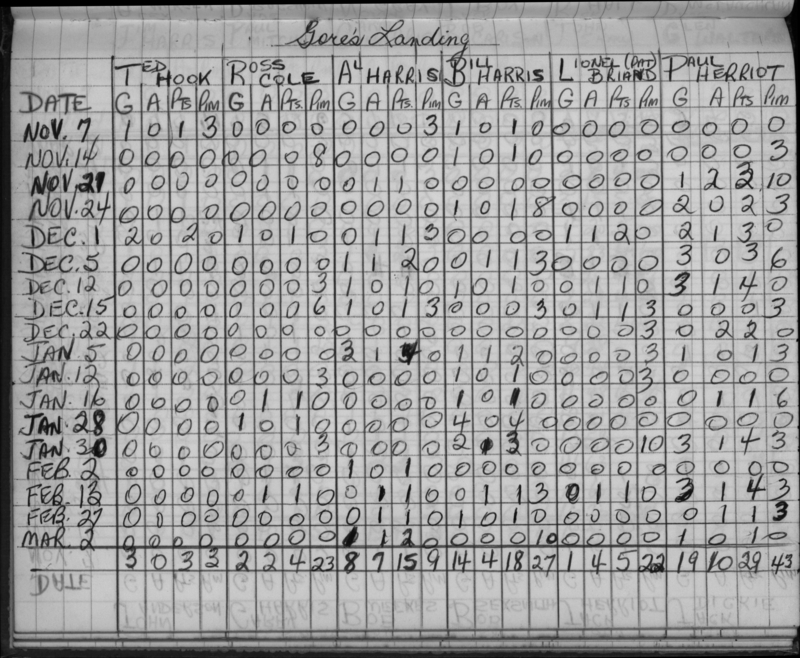 Gore's Landing
TED HOOK ROSS COLE AL HARRIS BILL HARRIS LIONEL (PAT) BRIAND PAUL HERRIOT
DATE G A Pts Pim G A Pts. Pim G A Pts. Pim G A Pts. Pim G A Pts. Pim G A Pts. Pim
NOV. 7 1 0 1 3 0 0 0 0 0 0 0 3 1 0 1 0 0 0 0 0 0 0 0 0
NOV. 14 0 0 0 0 0 0 0 8 0 0 0 0 1 0 1 0 0 0 0 0 0 0 0 3
NOV. 21 0 0 0 0 0 0 0 0 0 1 1 0 0 0 0 0 0 0 0 0 1 2 3 10
NOV. 24 0 0 0 0 0 0 0 0 0 0 0 0 1 0 1 8 0 0 0 0 2 0 2 3
DEC. 1 2 0 2 0 1 0 1 0 0 1 1 3 0 0 0 0 1 1 2 0 2 1 3 0
DEC. 5 0 0 0 0 0 0 0 0 1 1 2 0 0 1 1 3 0 0 0 0 3 0 3 6
DEC. 12 0 0 0 0 0 0 0 3 1 0 1 0 1 0 1 0 0 1 1 0 3 1 4 0
DEC. 15 0 0 0 0 0 0 0 6 1 0 1 3 0 0 0 3 0 1 1 3 0 0 0 3
DEC. 22 0 0 0 0 0 0 0 0 0 0 0 0 0 0 0 0 0 0 0 3 0 2 2 0
JAN. 5 0 0 0 0 0 0 0 0 3 1 4 0 1 1 2 0 0 0 0 3 1 0 1 3
JAN. 12 0 0 0 0 0 0 0 3 0 0 0 0 1 0 1 0 0 0 0 3 0 0 0 0
JAN. 16 0 0 0 0 0 1 1 0 0 0 0 0 1 0 1 0 0 0 0 0 0 1 1 6
JAN. 28 0 0 0 0 1 0 1 0 0 0 0 0 4 0 4 0 0 0 0 0 0 0 0 0
JAN. 30 0 0 0 0 0 0 0 3 0 0 0 0 2 1 3 0 0 0 0 10 3 1 4 3
FEB. 2 0 0 0 0 0 0 0 0 1 0 1 0 0 0 0 0 0 0 0 0 0 0 0 0
FEB. 12 0 0 0 0 0 1 1 0 0 1 1 0 0 1 1 3 0 1 1 0 3 1 4 3
FEB. 27 0 0 0 0 0 0 0 0 0 1 1 0 1 0 1 0 0 0 0 0 0 1 1 3
MAR. 2 0 0 0 0 0 0 0 0 1 1 2 0 0 0 0 10 0 0 0 0 1 0 1 0
3 0 3 3 2 2 4 23 8 7 15 9 14 4 18 27 1 4 5 22 19 10 29 43